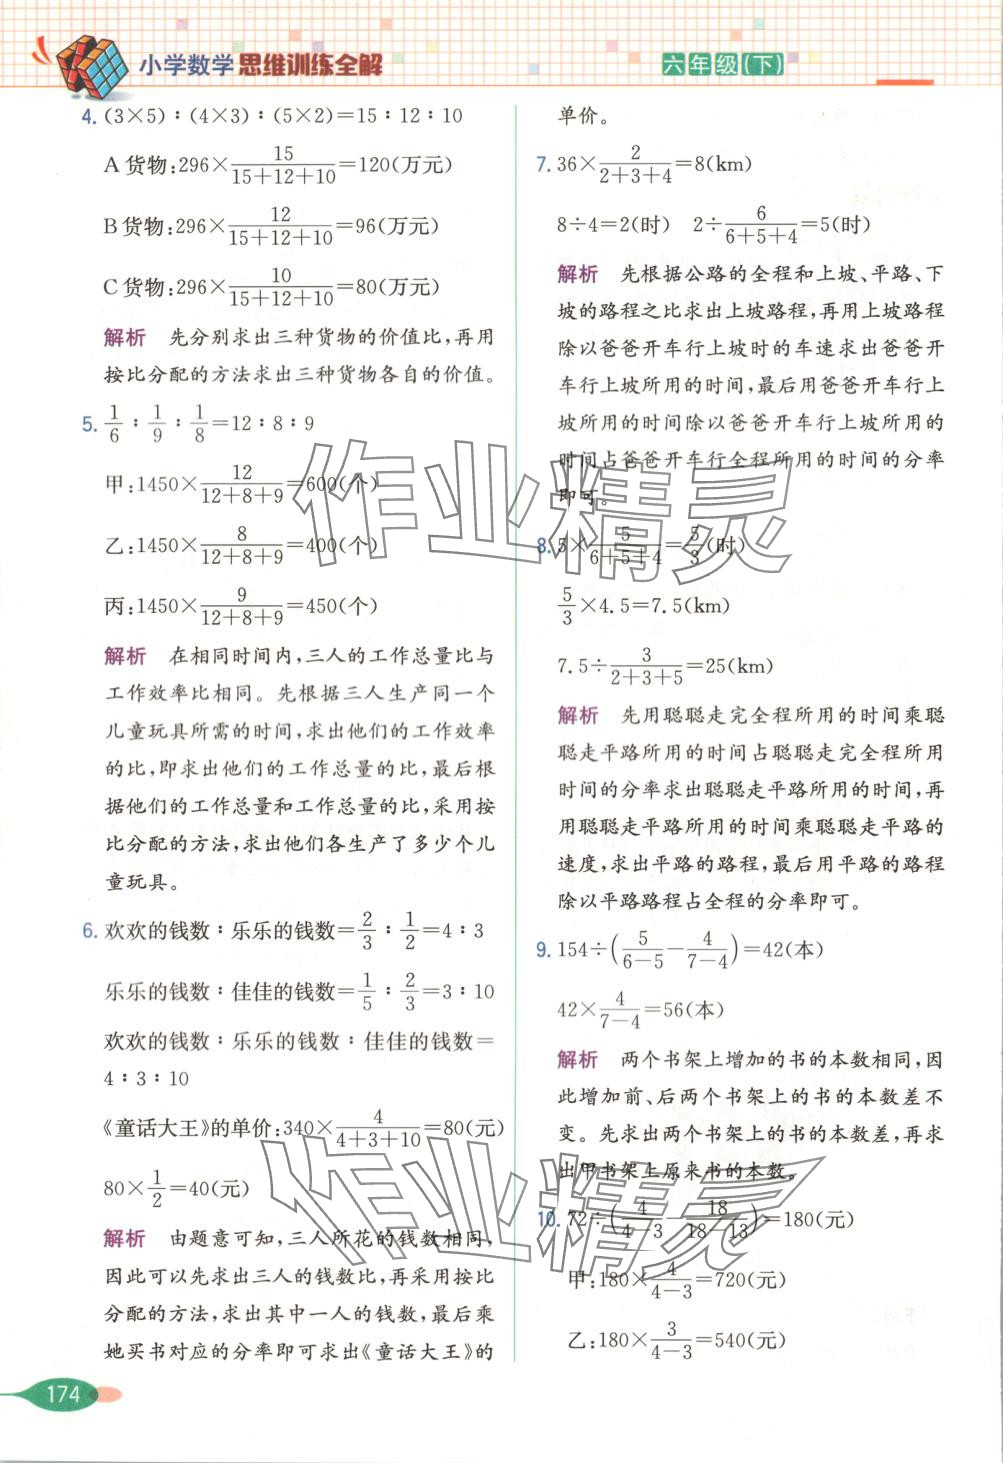 小学数学 思维训练全解
六年级(下)
4. (3×5)∶(4×3)∶(5×2)=15∶12∶10
A 货物:296×15/(15+12+10)=120(万元)
B 货物:296×12/(15+12+10)=96(万元)
C 货物:296×10/(15+12+10)=80(万元)
解析 先分别求出三种货物的价值比,再用
按比分配的方法求出三种货物各自的价值。
5. 1/6∶1/9∶1/8=12∶8∶9
甲:1450×12/(12+8+9)=600(个)
乙:1450×8/(12+8+9)=400(个)
丙:1450×9/(12+8+9)=450(个)
解析 在相同时间内,三人的工作总量比与
工作效率比相同。先根据三人生产同一个
儿童玩具所需的时间,求出他们的工作效率
的比,即求出他们的工作总量的比,最后根
据他们的工作总量和工作总量的比,采用按
比分配的方法,求出他们各生产了多少个儿
童玩具。
6. 欢欢的钱数∶乐乐的钱数=2/3∶1/2=4∶3
乐乐的钱数∶佳佳的钱数=1/5∶2/3=3∶10
欢欢的钱数∶乐乐的钱数∶佳佳的钱数=
4∶3∶10
《童话大王》的单价:340×4/(4+3+10)=80(元)
80×1/2=40(元)
解析 由题意可知,三人所花的钱数相同,
因此可以先求出三人的钱数比,再采用按比
分配的方法,求出其中一人的钱数,最后乘
她买书对应的分率即可求出《童话大王》的
单价。
7. 36×2/(2+3+4)=8(km)
8÷4=2(时) 2÷6/(6+5+4)=5(时)
解析 先根据公路的全程和上坡、平路、下
坡的路程之比求出上坡路程,再用上坡路程
除以爸爸开车行上坡时的车速求出爸爸开
车行上坡所用的时间,最后用爸爸开车行上
坡所用的时间除以爸爸开车行上坡所用的
时间占爸爸开车行全程所用的时间的分率
即可。
8. 5×5/(6+5+4)=5/3(时)
5/3×4.5=7.5(km)
7.5÷3/(2+3+5)=25(km)
解析 先用聪聪走完全程所用的时间乘聪
聪走平路所用的时间占聪聪走完全程所用
时间的分率求出聪聪走平路所用的时间,再
用聪聪走平路所用的时间乘聪聪走平路的
速度,求出平路的路程,最后用平路的路程
除以平路路程占全程的分率即可。
9. 154÷(5/(6-5)-4/(7-4))=42(本)
42×4/(7-4)=56(本)
解析 两个书架上增加的书的本数相同,因
此增加前、后两个书架上的书的本数差不
变。先求出两个书架上的书的本数差,再求
出甲书架上原来书的本数。
10. 72÷(4/(4-3)-18/(18-13))=180(元)
甲:180×4/(4-3)=720(元)
乙:180×3/(4-3)=540(元)
174
作业精灵
作业精灵